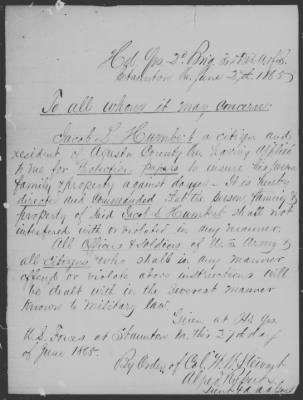 Hd. Qrs 2d Brig
Staunton Va June 27th 1865
To all whom it may concern:
Jacob S Humbert a citizen and
resident of Agusta County Va. having applied
to me for Protection papers to insure his person
family & property against danger - It is hereby
directed and commanded that the person, family &
property of said Jacob S Humbert shall not
interfered with or molested in any manner.
All Officers & Soldiers of U.S. Army &
all Citizens who shall in any manner
offend or violate above instructions will
be dealt with in the severest manner
known to military law.
Given at Hd. Qrs
U.S. Forces at Staunton Va this 27th day
of June 1865.
By Order of Col. W. B.